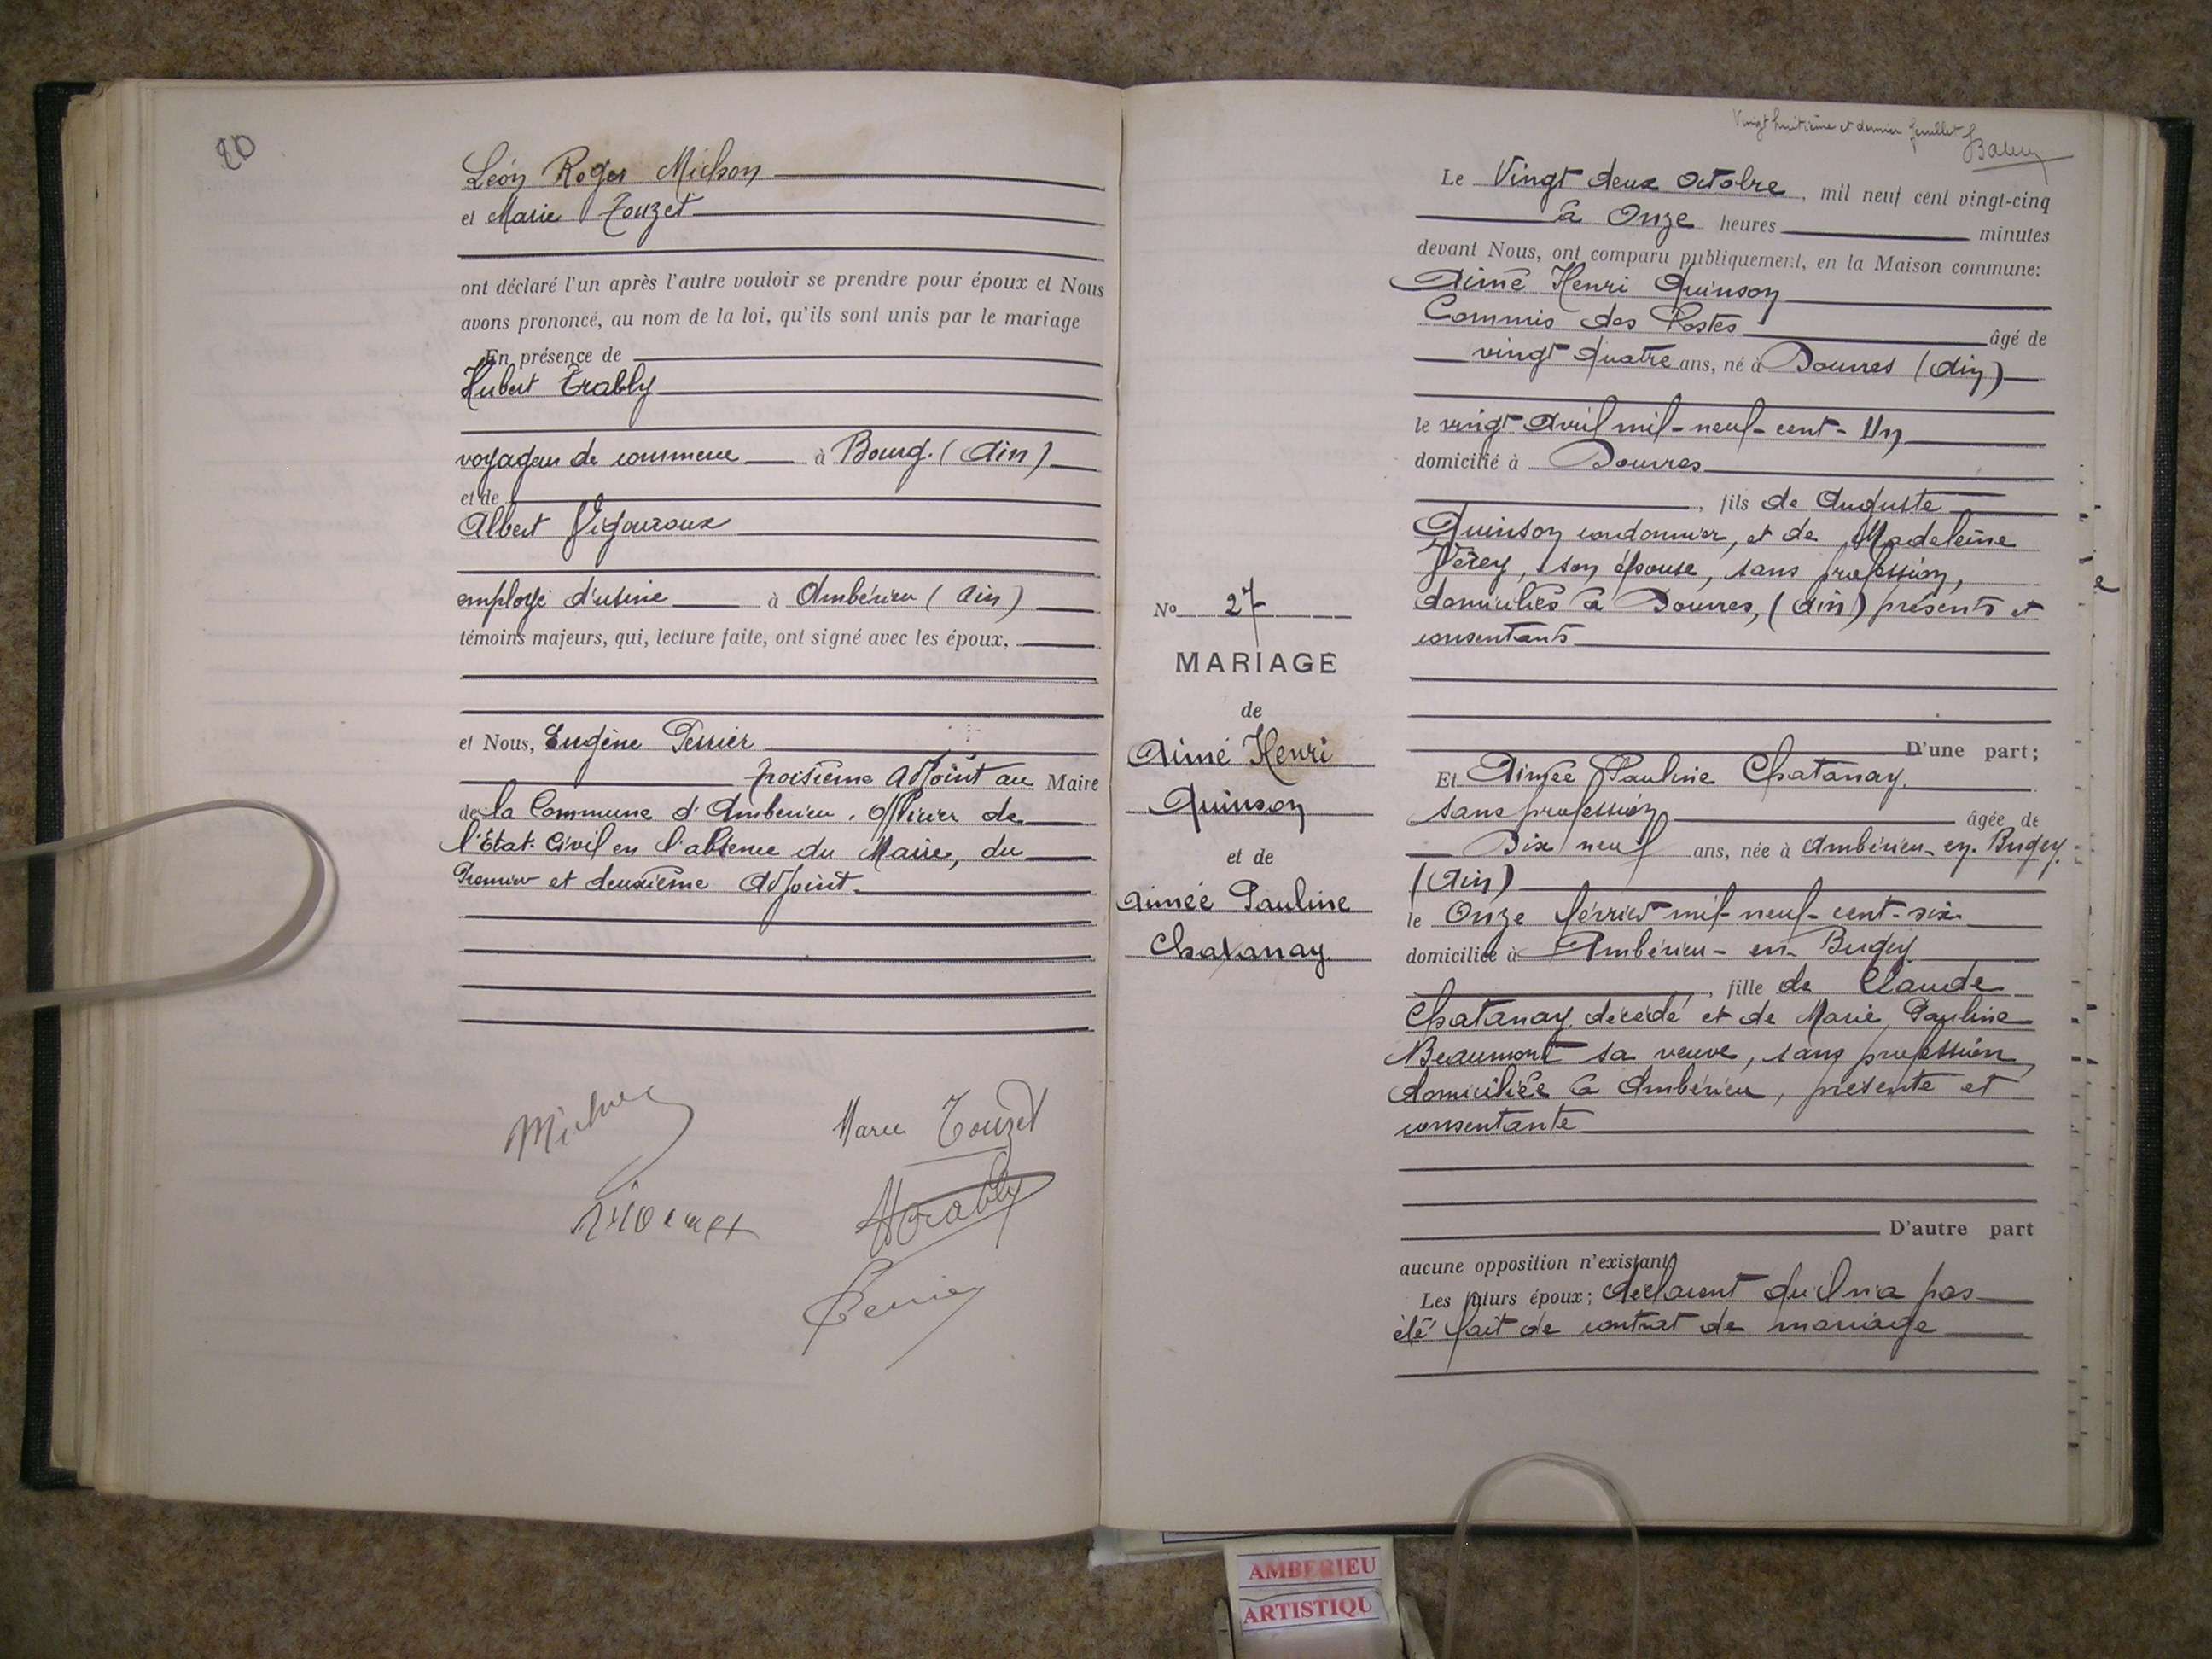 20
Léon Roger Michon
et Marie Touzet
ont déclaré l'un après l'autre vouloir se prendre pour époux et Nous
avons prononcé, au nom de la loi, qu'ils sont unis par le mariage
En présence de
Hubert Trably
voyageur de commerce à Bourg. (Ain)
et de
Albert Vigouroux
employé d'usine à Ambérieu (Ain)
témoins majeurs, qui, lecture faite, ont signé avec les époux,
et Nous, Eugène Perrier
troisième adjoint au Maire
de la Commune d'Ambérieu. Officier de
l'Etat-Civil en l'absence du Maire, du
Premier et deuxième adjoint.
Marie Touzet
HTrably
Perrier
Vingt huitième et dernier feuillet
Le Vingt deux Octobre, mil neuf cent vingt-cinq
à Onze heures minutes
devant Nous, ont comparu publiquement, en la Maison commune:
Aimé Henri Quinson
Commis des Postes âgé de
vingt quatre ans, né à Douvres (Ain)
le vingt Avril mil-neuf-cent-Un
domicilié à Douvres
, fils de Auguste
Quinson cordonnier, et de Madeleine
Vézey, son épouse, sans profession,
domiciliés à Douvres, (Ain) présents et
consentants
D'une part;
Et Aimée Pauline Chatanay.
sans profession âgée de
Dix neuf ans, née à Ambérieu-en-Bugey.
(Ain)
le Onze février mil-neuf-cent-six
domiciliée à Ambérieu-en-Bugey
, fille de Claude
Chatanay, décédé et de Marie Pauline
Beaumont sa veuve, sans profession
domiciliée à Ambérieu, présente et
consentante
D'autre part
aucune opposition n'existant
Les futurs époux; déclarent qu'il n'a pas
été fait de contrat de mariage
No 27
MARIAGE
de
Aimé Henri
Quinson
et de
Aimée Pauline
Chatanay.
AMBERIEU
ARTISTIQU